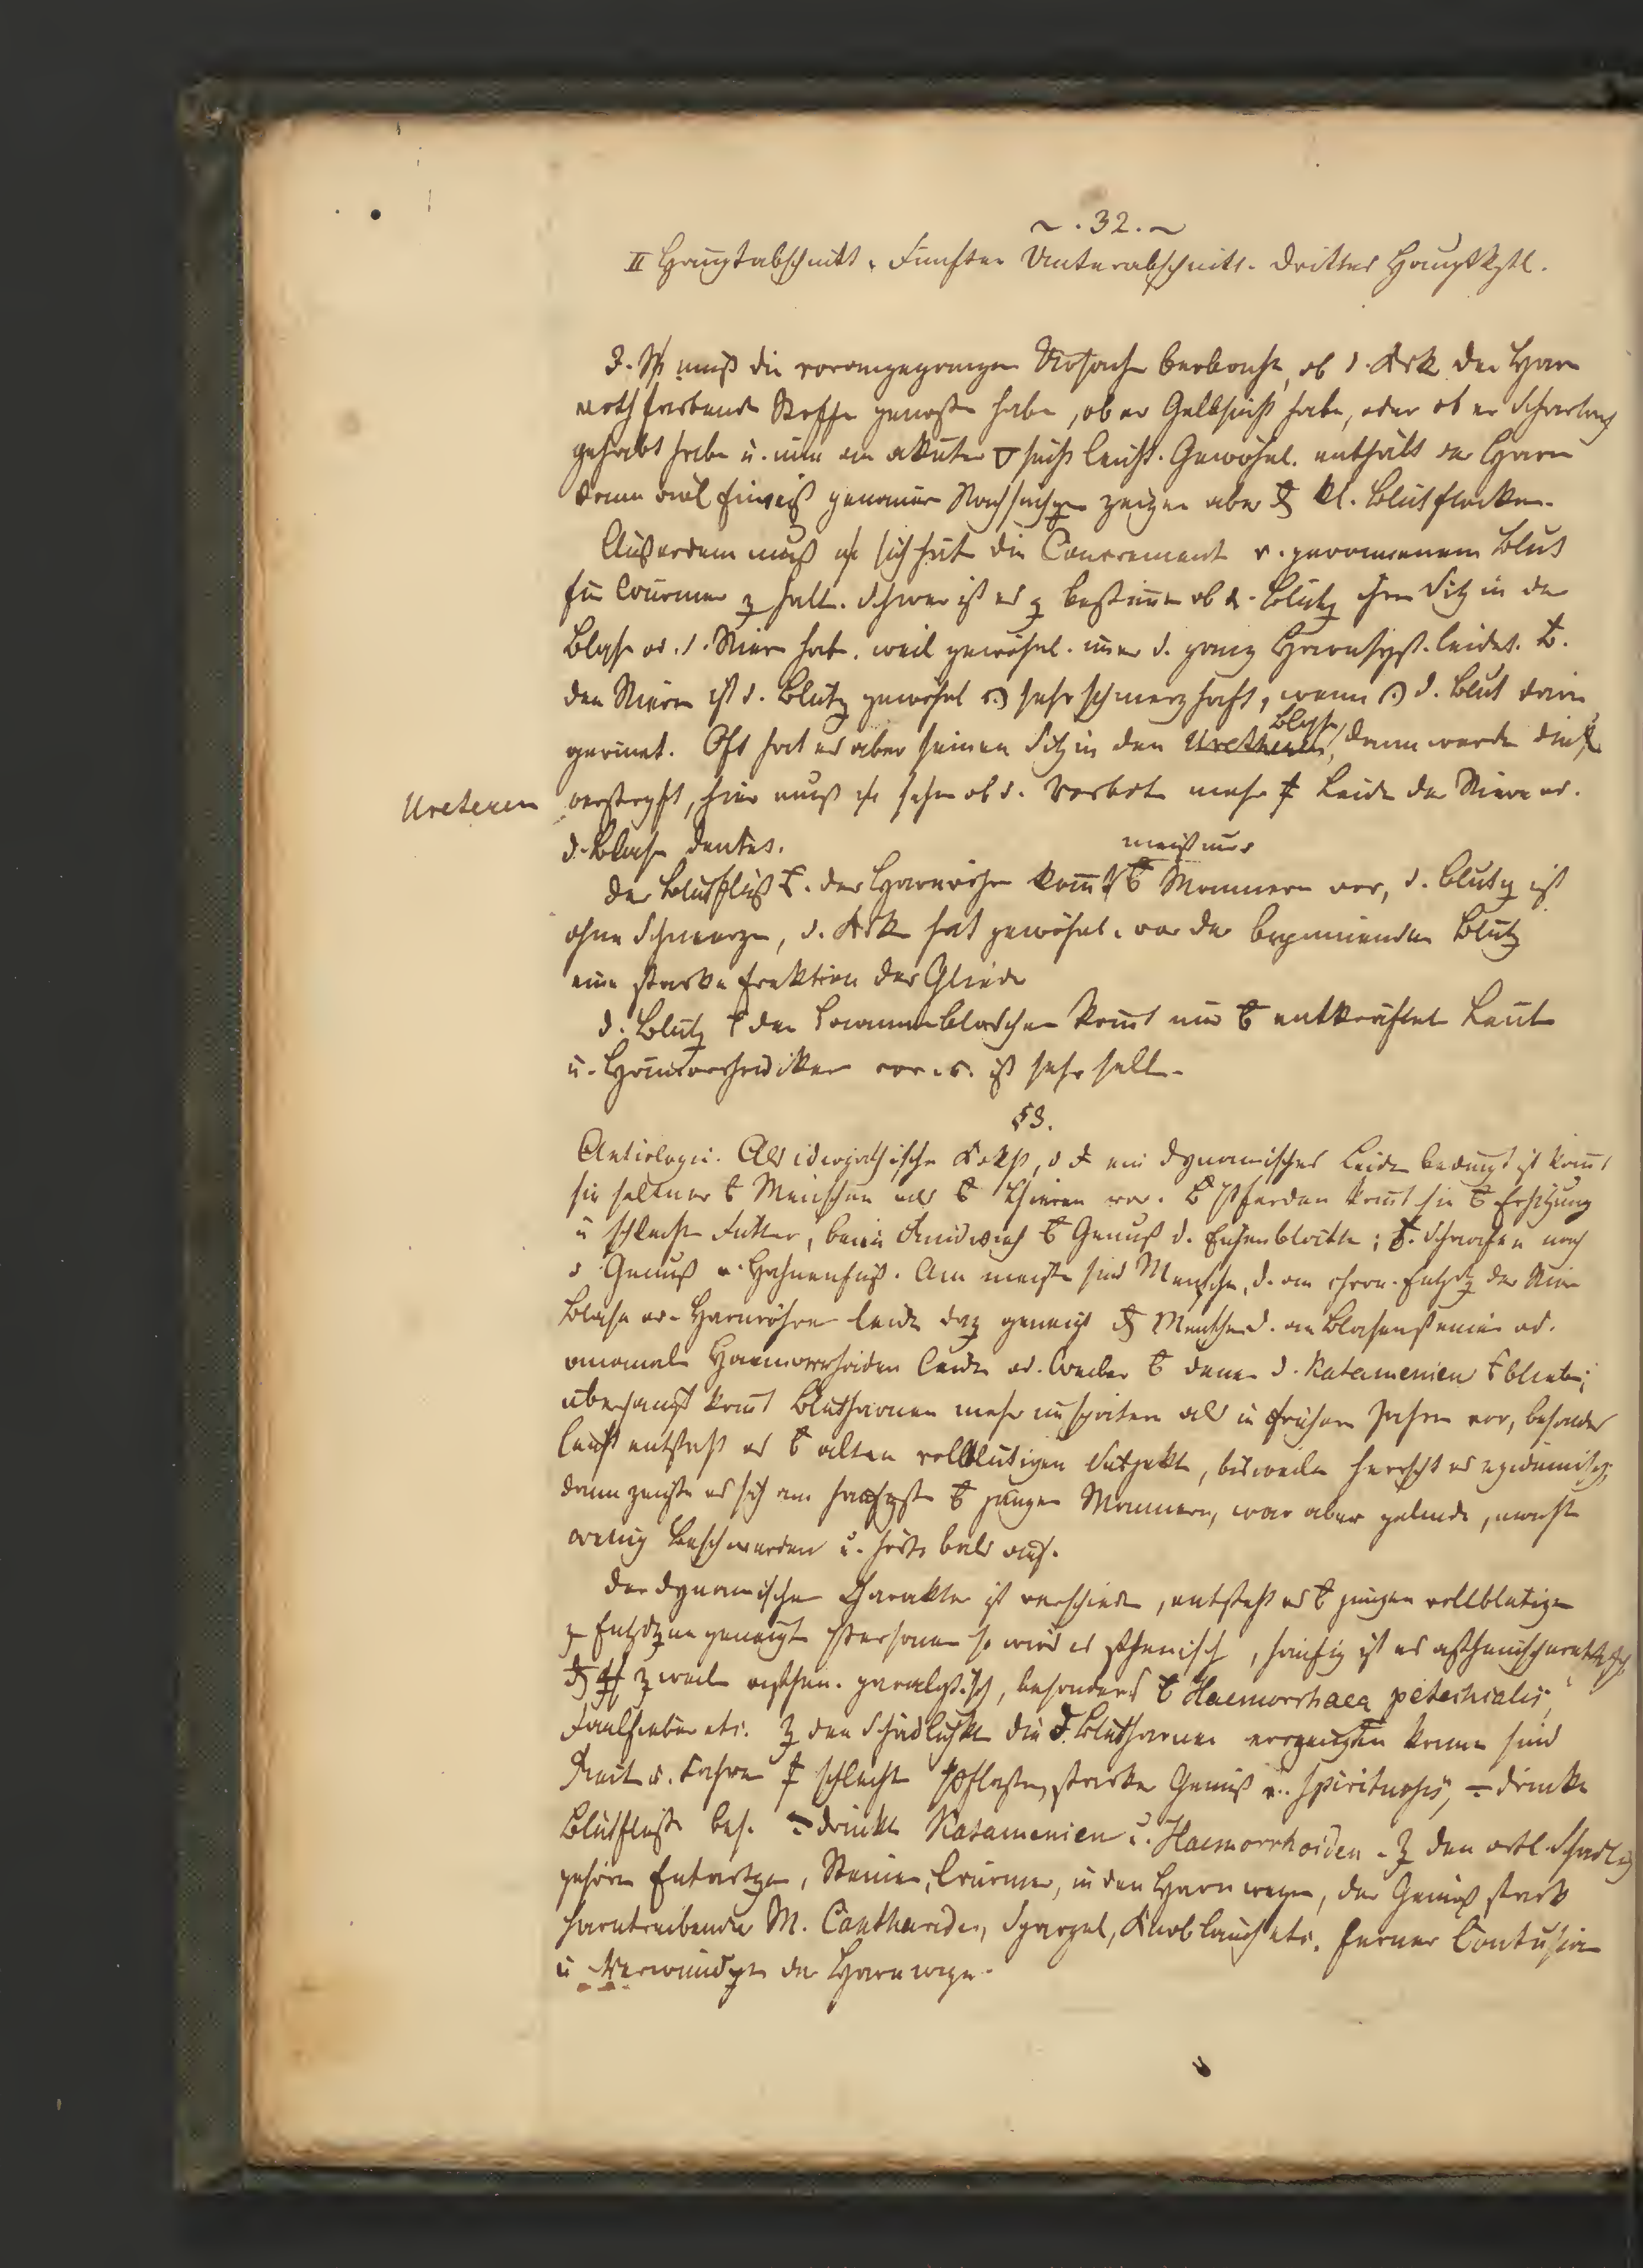 ~ . 32. ~
II Hauptabschnitt. Fünfter Unterabschnitt. Drittes Hauptkptl.
muß die vorangegangen Ursache beobacht, ob d. der Harn
roth färbende Stoffe genoßen habe, ob er Gelbsucht habe, oder ob er Scharlach
gehabt habe u. nun an akuter sucht leidet. Gewöhnl. enthält der Harn
dann viel Eiweiß genauer zeigen aber kl. Blutflocken.
Außerdem muß sich hüt die Concrement v. geronnenem Blut
für Würmer z halt. Schwer ist es z bestimm ob d. Blutg ihren Sitz in der
Blase od. d. Nieren hat, weil gewöhnl. d. ganz Harnsyst. leidet.
den Nieren ist d. Blutg gewöhnl sehr schmerzhaft, wenn d. Blut darin
Blase
gerinnt. Oft hat es aber seinen Sitz in den Urethren, dann werde diese
Ureteren
verstopft, hier muß sehn ob d. Vorbot mehr Leiden der Niere od.
d. Blase deutet.
meist nur
der Blutfluß der Harnröhre komt Männern vor, d. Blutg ist
ohne Schmerzen, d. hat gewöhnl. vor der beginnenden Blutg
eine starke Erektion des Gliedes
d. Blutg den Saamenblaschen komt nur entkräftet Leut
u. Hämorrhoidiker vor u. ist sehr selt.
§3.
Aetiologie. Als idiopathische ein dynamisches Leiden bedingt ist komt
sie seltner Menschen als Thieren vor. Pferden komt sie Erhitzung
u schlecht Futter, beim Rindvieh Genuß d. Eichenblätter; Schaafen nach
d Genuß v. Hahnenfuß. Am meist sind Mensche, d. an chron. Entzdg der Nier
Blase od. Harnröhre leide daz geneigt Mensche d. an Blasensteinen od.
anomale Haemorrhoiden leide od. Weiber denen d. Katamenien blieb;
überhaupt komt Blutharnen mehr im spätern als in frühern Jahren vor, besonders
leicht entsteht es alten vollblütigen Subjekt, bisweile herrscht es epidemisch,
dann zeigte es sich am häufigst jungen Männern, war aber gelinde, macht
wenig Beschwerden u. hörte bald auf.
der dynamische Charakter ist verschied, entsteht es jungen vollblütige
z geneigt Personen so wird es sthenisch, häufig ist es
z weil asthen. paralytisch, besonders Haemorrhaea petechialis,
Faulfieber etc. Z den Schädlichk die d. Blutharnen erzeugen könne sind
Reit u. Fahren schlecht Pflaster, starker Genuß v. Spirituosis, drückte
Blutflüße bes. drückte Katamenien u. Haemorrhoiden. Z den ortl. Schädl
gehören Entartge, Steine, Würmer, in den Harnwege, der Genuß stark
harntreibender M. Canthariden, Spargel, Knoblauch etc. ferner Contusion
u Verwundgen der Harnwege.